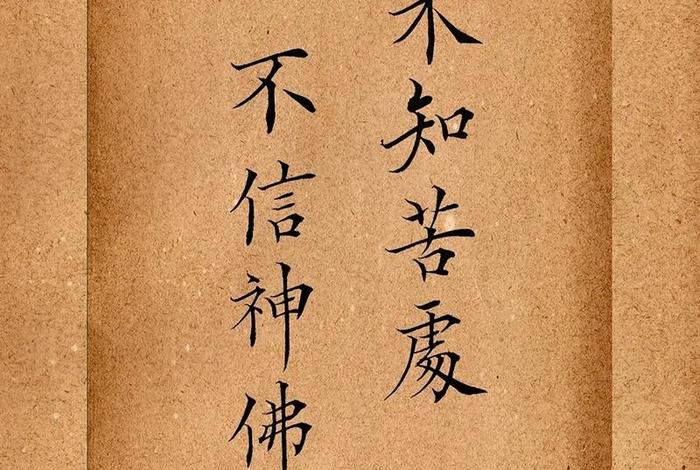 未知苦處
不信神佛